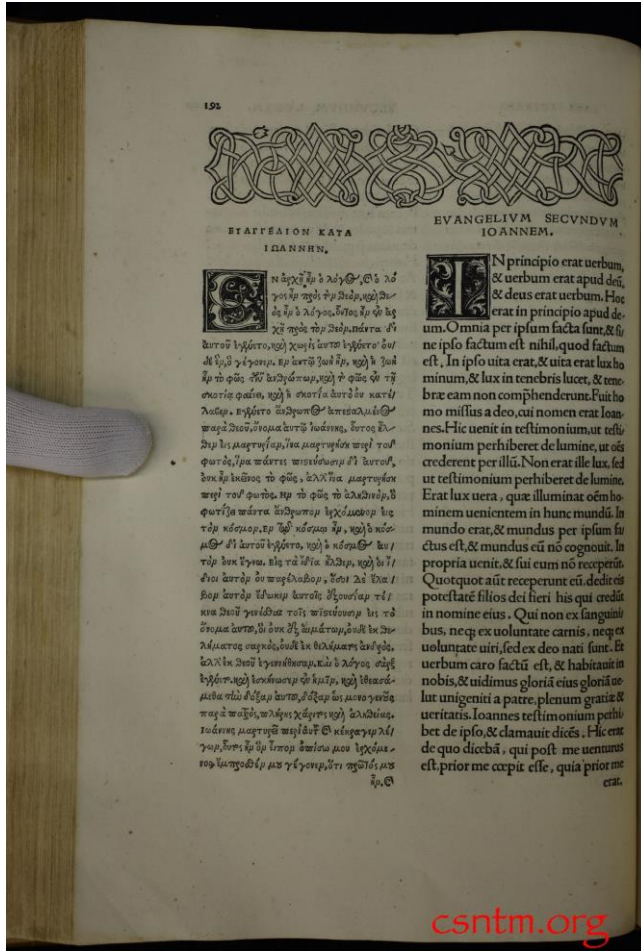 192
ΕΥΑΓΓΕΛΙΟΝ ΚΑΤΑ
ΙΩΑΝΝΗΝ.
ΕΝ ἀρχῇ ἦν ὁ λόγος, καὶ ὁ λό
γος ἦν πρὸς τὸν θεὸν, καὶ θε-
ὸς ἦν ὁ λόγος. οὗτος ἦν ἐν ἀρ
χῇ πρὸς τὸν θεὸν. πάντα δι'
αὐτοῦ ἐγένετο, καὶ χωρὶς αὐτοῦ ἐγένετο οὐ/
δὲ ἓν, ὃ γέγονεν. Εν αὐτῷ ζωὴ ἦν, καὶ ἡ ζωὴ
ἦν τὸ φῶς τῶν ἀνθρώπων, καὶ τὸ φῶς ἐν τῇ
σκοτίᾳ φαίνει, καὶ ἡ σκοτία αὐτὸ οὐ κατέ/
λαβεν. Εγένετο ἄνθρωπος ἀπεσαλμένος
παρὰ θεοῦ, ὄνομα αὐτῷ Ιωάννης, οὗτος ἦλ-
θεν εἰς μαρτυρίαν, ἵνα μαρτυρήσῃ περὶ τοῦ
φωτός, ἵνα πάντες πιστεύσωσιν δι' αὐτοῦ,
οὐκ ἦν ἐκεῖνος τὸ φῶς, ἀλλ' ἵνα μαρτυρήσῃ
περὶ τοῦ φωτός. Ην τὸ φῶς τὸ ἀληθινὸν, ὃ
φωτίζει πάντα ἄνθρωπον ἐρχόμενον εἰς
τὸν κόσμον, Εν τῷ κόσμῳ ἦν, καὶ ὁ κόσ-
μος δι' αὐτοῦ ἐγένετο, καὶ ὁ κόσμος αὐ/
τὸν οὐκ ἔγνω. Εἰς τὰ ἴδια ἦλθεν, καὶ οἱ ἴ/
διοι αὐτὸν οὐ παρέλαβον, ὅσοι δὲ ἔλα/
βον αὐτὸν ἔδωκεν αὐτοῖς ἐξουσίαν τέ/
κνα θεοῦ γενέσθαι τοῖς πιστεύουσιν εἰς τὸ
ὄνομα αὐτοῦ, οἳ οὐκ ἐξ αἱμάτων, οὐδὲ ἐκ θε-
λήματος σαρκός, οὐδὲ ἐκ θελήματς ἀνδρός.
ἀλλ' ἐκ θεοῦ ἐγεννήθησαν. Καὶ ὁ λόγος σὰρξ
ἐγένετο, καὶ ἐσκήνωσεν ἐν ἡμῖν, καὶ ἐθεασά-
μεθα τὴν δόξαν αὐτοῦ, δόξαν ὡς μονογενοῦς
παρὰ πατρός, πλήρης χάριτος καὶ ἀληθείας.
Ιωάννης μαρτυρεῖ περὶ αὐτοῦ καὶ κέκραγεν λέ/
γων, οὗτος ἦν ὃν εἶπον ὀπίσω μου ἐρχόμε-
νος, ἔμπροσθέν μου γέγονεν, ὅτι πρῶτός μου
ἦν. Καὶ
EVANGELIVM SECVNDVM
IOANNEM.
IN principio erat uerbum,
& uerbum erat apud deū,
& deus erat uerbum. Hoc
erat in principio apud de-
um. Omnia per ipsum facta sunt, & si/
ne ipso factum est nihil, quod factum
est. In ipso uita erat, & uita erat lux ho
minum, & lux in tenebris lucet, & tene-
bræ eam non comp̄henderunt. Fuit ho
mo missus a deo, cui nomen erat Ioan-
nes. Hic uenit in testimonium, ut testi/
monium perhiberet de lumine, ut oēs
crederent per illū. Non erat ille lux, sed
ut testimonium perhiberet de lumine.
Erat lux uera, quæ illuminat oēm ho-
minem uenientem in hunc mundū. In
mundo erat, & mundus per ipsum fa/
ctus est, & mundus eū nō cognouit. In
propria uenit, & sui eum nō receperūt.
Quotquot aūt receperunt eū, dedit eis
potestatē filios dei fieri his qui credūt
in nomine eius. Qui non ex sanguini/
bus, neq; ex uoluntate carnis, neq; ex
uoluntate uiri, sed ex deo nati sunt. Et
uerbum caro factū est, & habitauit in
nobis, & uidimus gloriā eius gloriā ue-
lut unigeniti a patre, plenum gratiæ &
ueritatis. Ioannes testimonium perhi/
bet de ipso, & clamauit dicēs. Hic erat
de quo dicebā, qui post me uenturus
est, prior me cœpit esse, quia prior me
erat.
csntm.org